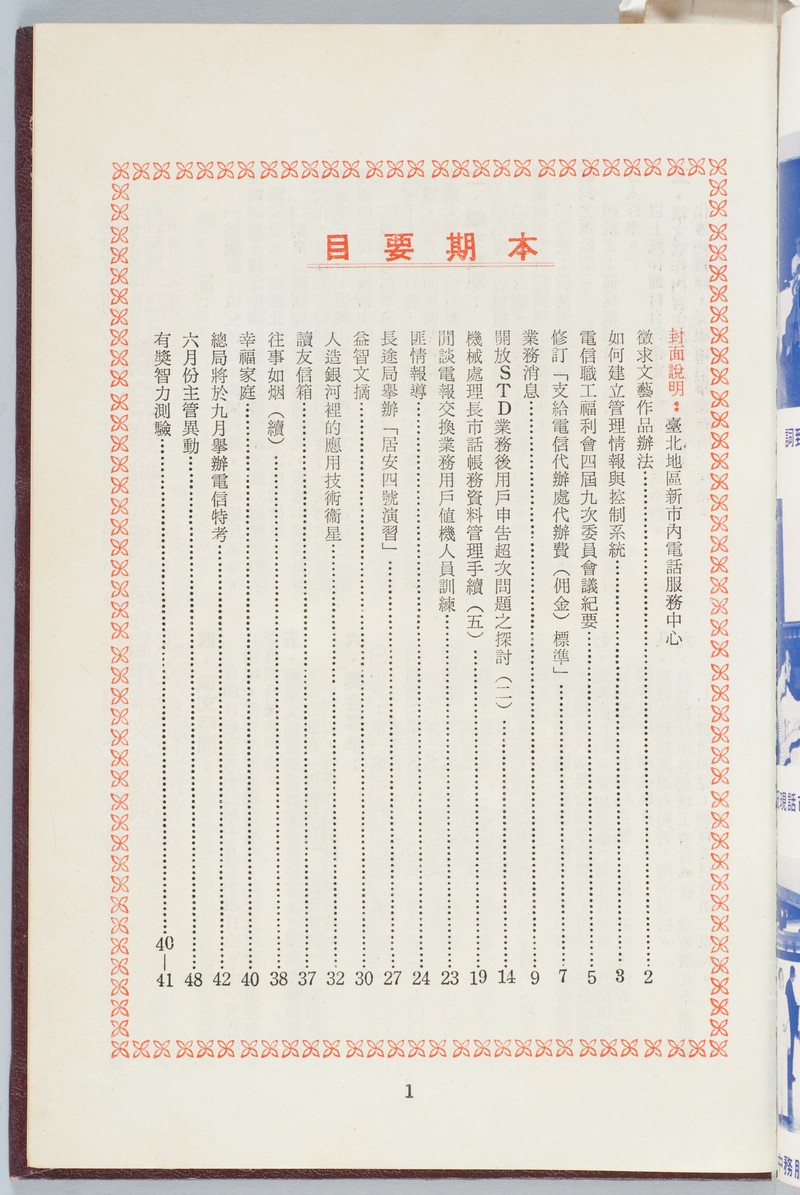 本期要目
封面說明：臺北地區新市內電話服務中心
徵求文藝作品辦法……2
如何建立管理情報與控制系統……3
電信職工福利會四屆九次委員會議紀要……5
修訂「支給電信代辦處代辦費（佣金）標準」……7
業務消息……9
開放STD業務後用戶申告超次問題之探討（二）……14
機械處理長市話帳務資料管理手續（五）……19
閒談電報交換業務用戶值機人員訓練……23
匪情報導……24
長途局舉辦「居安四號演習」……27
益智文摘……30
人造銀河裡的應用技術衞星……32
讀友信箱……37
往事如烟（續）……38
幸福家庭……40
總局將於九月舉辦電信特考……42
六月份主管異動……48
有獎智力測驗……40—41
1